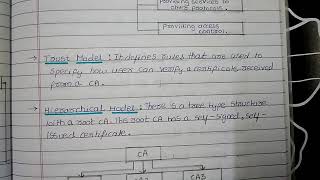 Providing services to
other protocols.
Providing access
control.
→ Trust Model : It defines rules that are used to
specify how user can verify a certificate received
from a CA.
→ Hierarchical Model : There is a tree type structure
with a root CA. This root CA has a self-signed, self-
issued certificate.
CA
CA3